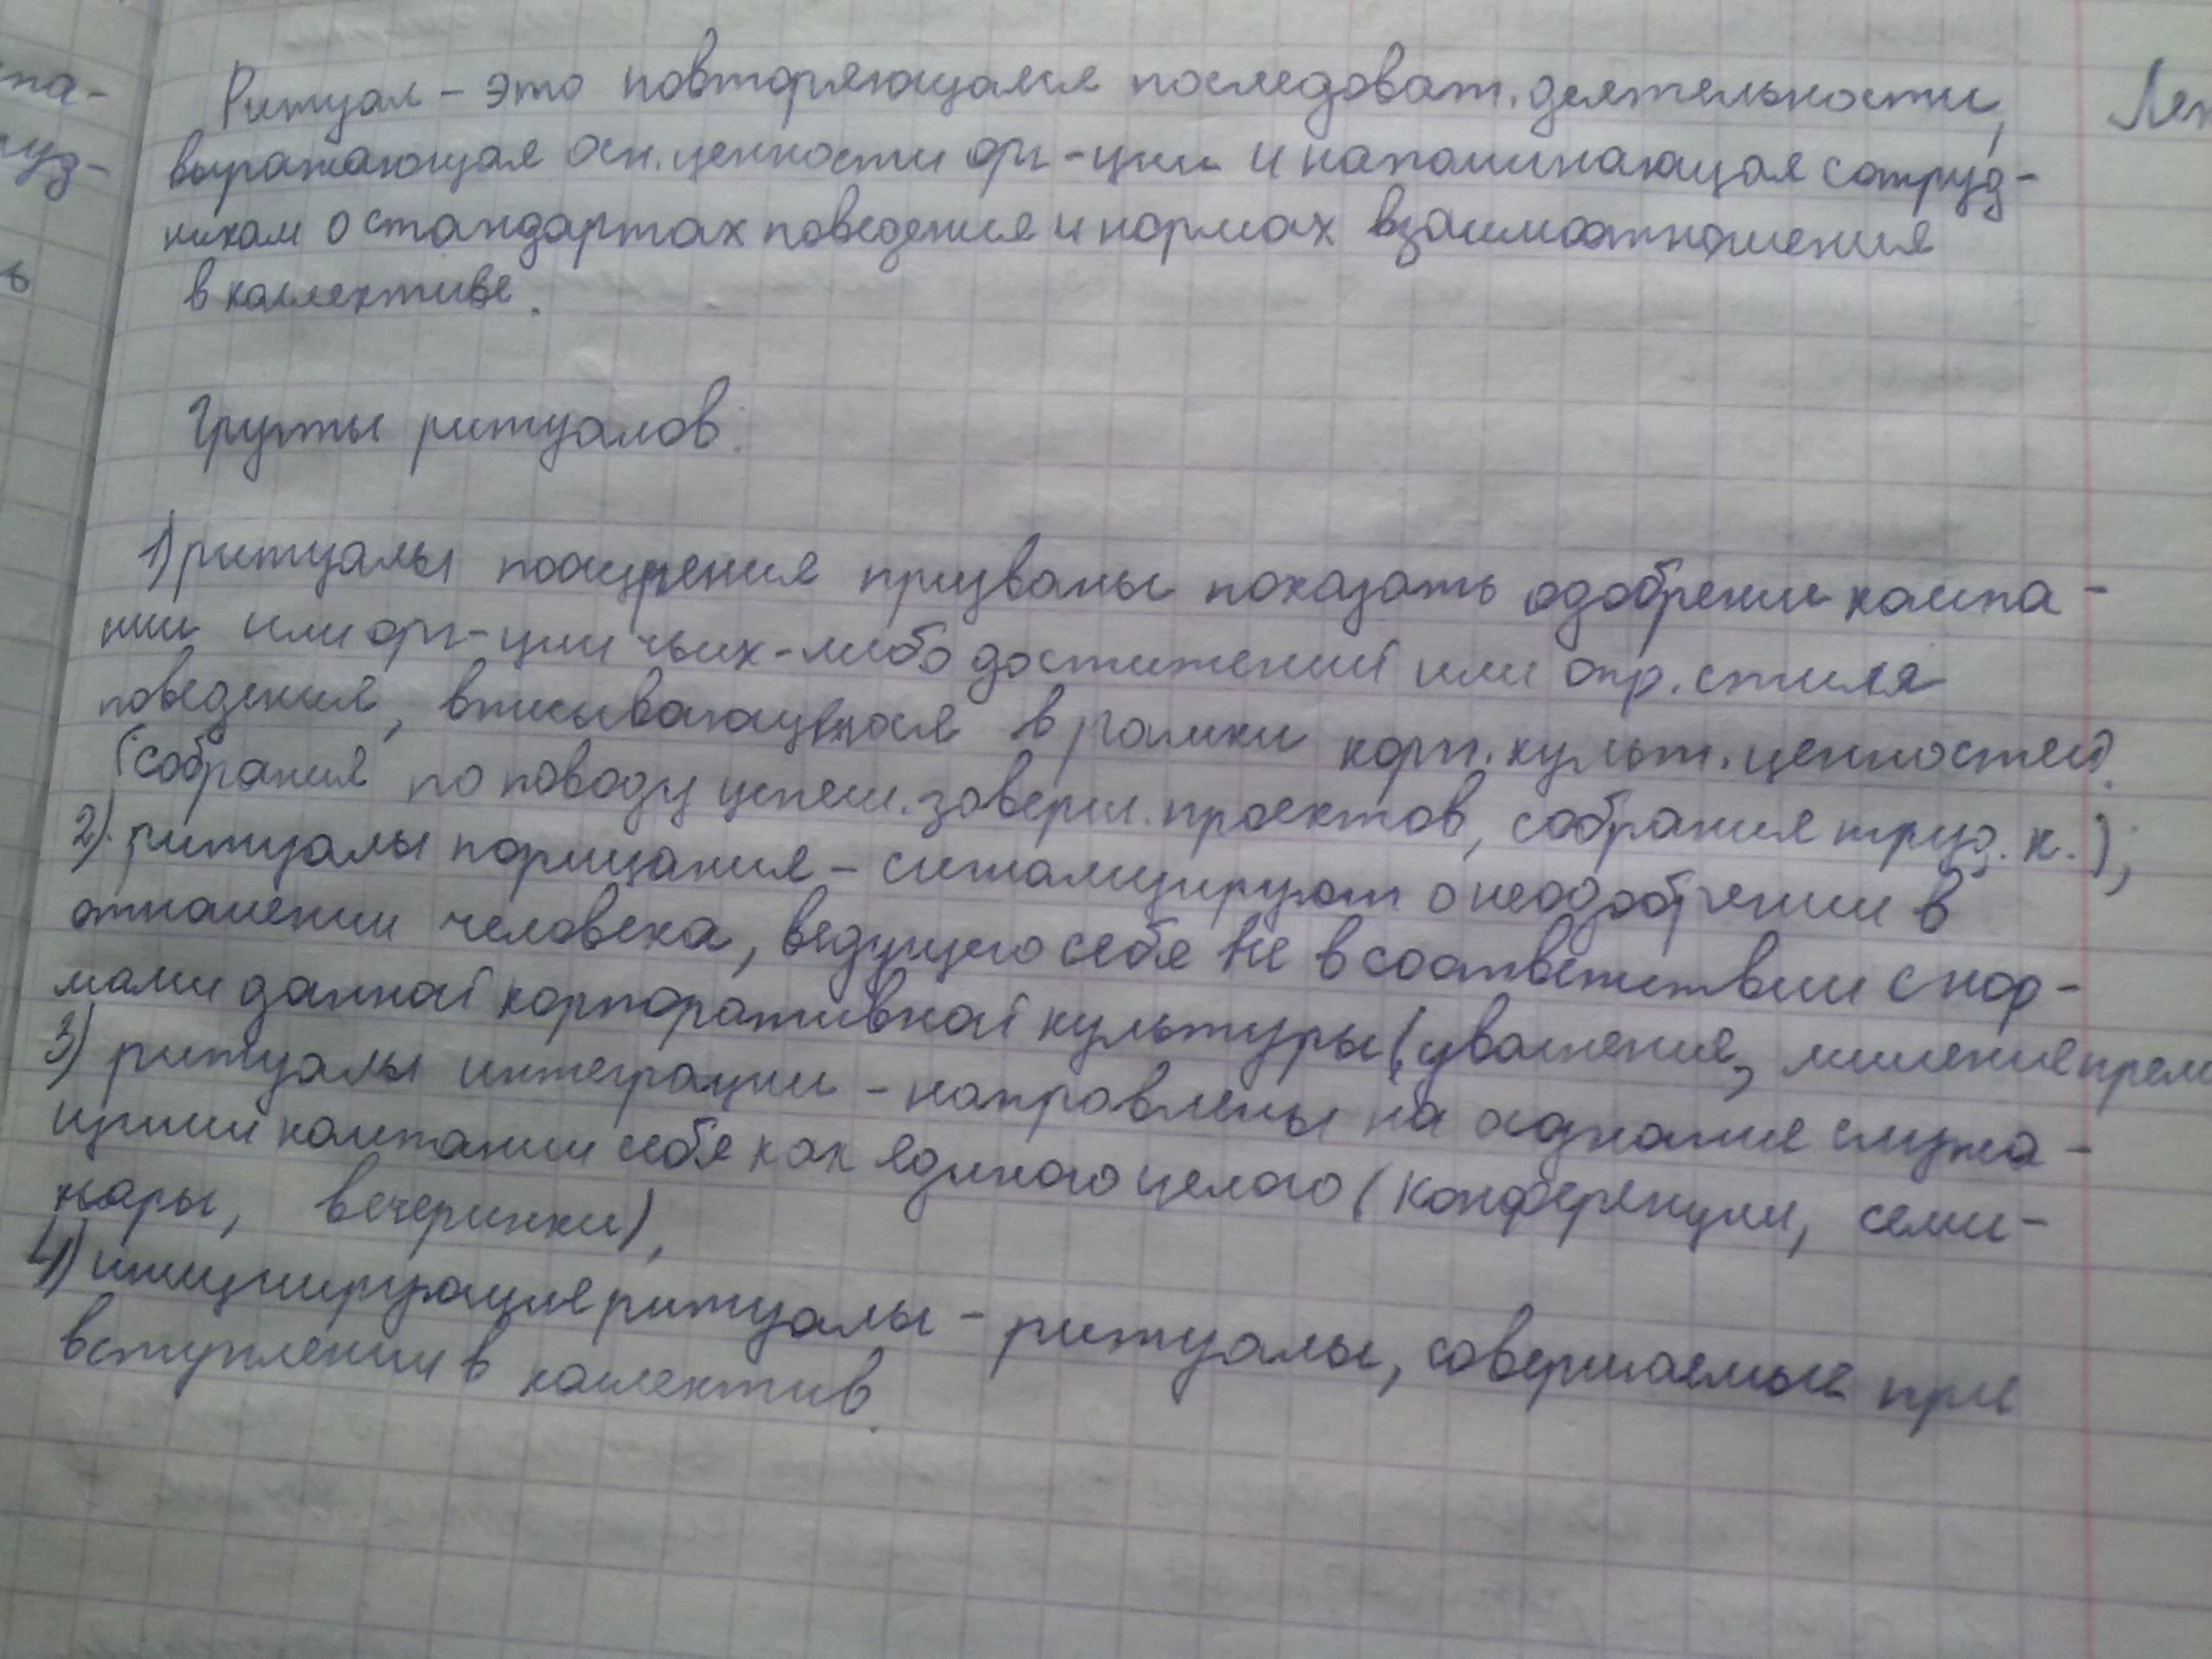 Ритуал - это повторяющаяся последоват. деятельности,
выражающая осн. ценности орг-ции и напоминающая сотруд-
никам о стандартах поведения и нормах взаимоотношения
в коллективе.
Группы ритуалов:
1) ритуалы поощрения призваны показать одобрении компа-
нии или орг-ции чьих-либо достижений или опр. стиля
поведения, вписывающегося в рамки корп. культ. ценностей
(собрания по поводу успеш. заверш. проектов, собрания труд. к.);
2) ритуалы порицания - сигнализируют о неодобрении в
отношении человека, ведущего себя не в соответствии с нор-
мами данной корпоративной культуры (увольнения, лишение прем
3) ритуалы интеграции - направлены на осознание служа-
щими компании себя как единого целого (конференции, семи-
нары, вечеринки),
4) ритуалы - ритуалы, совершаемые при
вступлении в коллектив.
та-
руз-
ь
Лек